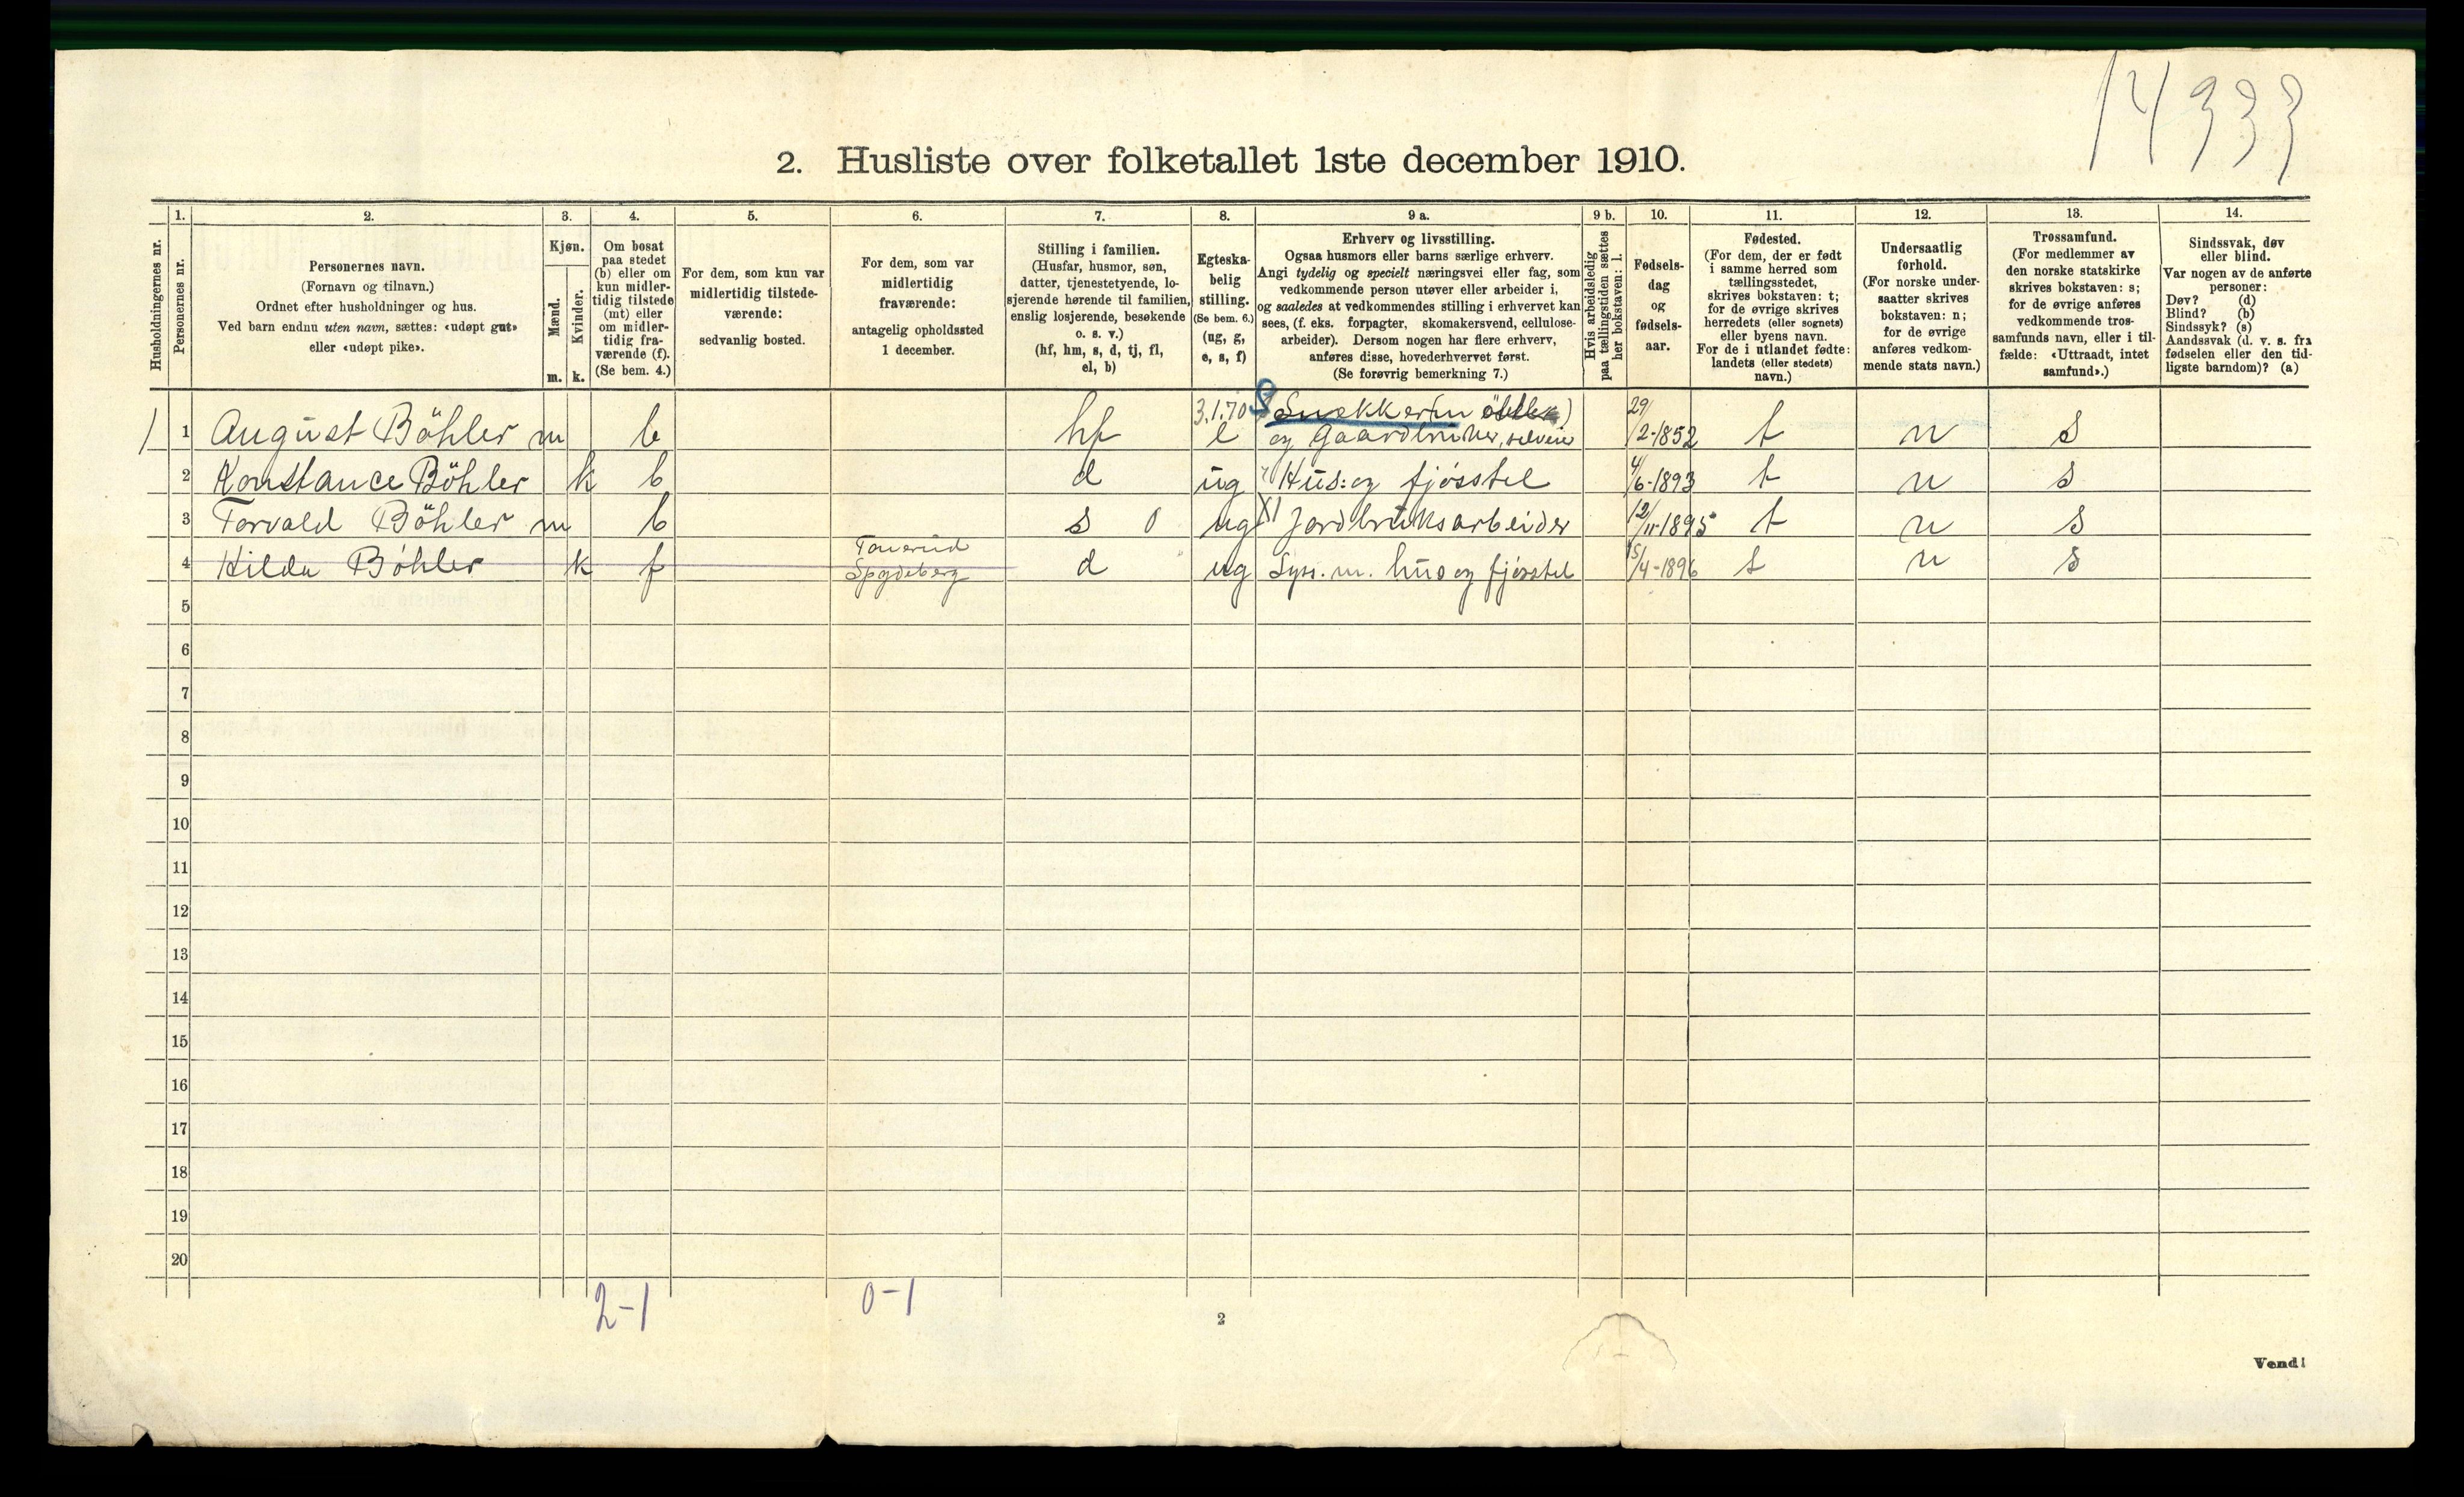 14333
2. Husliste over folketallet 1ste december 1910.
Husholdningernes nr.
1.
Personernes nr.
2.
Personernes navn.
(Fornavn og tilnavn.)
Ordnet efter husholdninger og hus.
Ved barn endnu uten navn, sættes: «udøpt gut»
eller «udøpt pike».
3.
Kjøn.
Mænd.
Kvinder.
m. k.
4.
Om bosat
paa stedet
(b) eller om
kun midler-
tidig tilstede
(mt) eller
om midler-
tidig fra-
værende (f).
(Se bem. 4.)
5.
For dem, som kun var
midlertidig tilstede-
værende:
sedvanlig bosted.
6.
For dem, som var
midlertidig
fraværende:
antagelig opholdssted
1 december.
7.
Stilling i familien.
(Husfar, husmor, søn,
datter, tjenestetyende, lo-
sjerende hørende til familien,
enslig losjerende, besøkende
o. s. v.)
(hf, hm, s, d, tj, fl,
el, b)
8.
Egteska-
belig
stilling.
(Se bem. 6.)
(ug, g,
e, s, f)
9 a.
Erhverv og livsstilling.
Ogsaa husmors eller barns særlige erhverv.
Angi tydelig og specielt næringsvei eller fag, som
vedkommende person utøver eller arbeider i,
og saaledes at vedkommendes stilling i erhvervet kan
sees, (f. eks. forpagter, skomakersvend, cellulose-
arbeider). Dersom nogen har flere erhverv,
anføres disse, hovederhvervet først.
(Se forøvrig bemerkning 7.)
9 b.
Hvis arbeidsledig
paa tællingstiden sættes
her bokstaven: l.
10.
Fødsels-
dag
og
fødsels-
aar.
11.
Fødested.
(For dem, der er født
i samme herred som
tællingsstedet,
skrives bokstaven: t;
for de øvrige skrives
herredets (eller sognets)
eller byens navn.
For de i utlandet fødte:
landets (eller stedets)
navn.)
12.
Undersaatlig
forhold.
(For norske under-
saatter skrives
bokstaven: n;
for de øvrige
anføres vedkom-
mende stats navn.)
13.
Trossamfund.
(For medlemmer av
den norske statskirke
skrives bokstaven: s;
for de øvrige anføres
vedkommende tros-
samfunds navn, eller i til-
fælde: «Uttraadt, intet
samfund».)
14.
Sindssvak, døv
eller blind.
Var nogen av de anførte
personer:
Døv? (d)
Blind? (b)
Sindssyk? (s)
Aandssvak (d. v. s. fra
fødselen eller den tid-
ligste barndom)? (a)
3.1.70 Snekker
1 1 August Böhler m b hf e og Gaardbruker, selveier 29/2-1852 t n s
2 Konstance Böhler k b d ug Hus: og fjøsstel 4/6-1893 t n s
3 Torvald Böhler m b s 0 ug Jordbruksarbeider 12/11-1895 t n s
4 Hilda Böhler k f Spydeberg d ug Syss. m. hus og fjøsstel 15/4-1896 t n s
5
6
7
8
9
10
11
12
13
14
15
16
17
18
19
20
2-1 0-1
2
Vend!